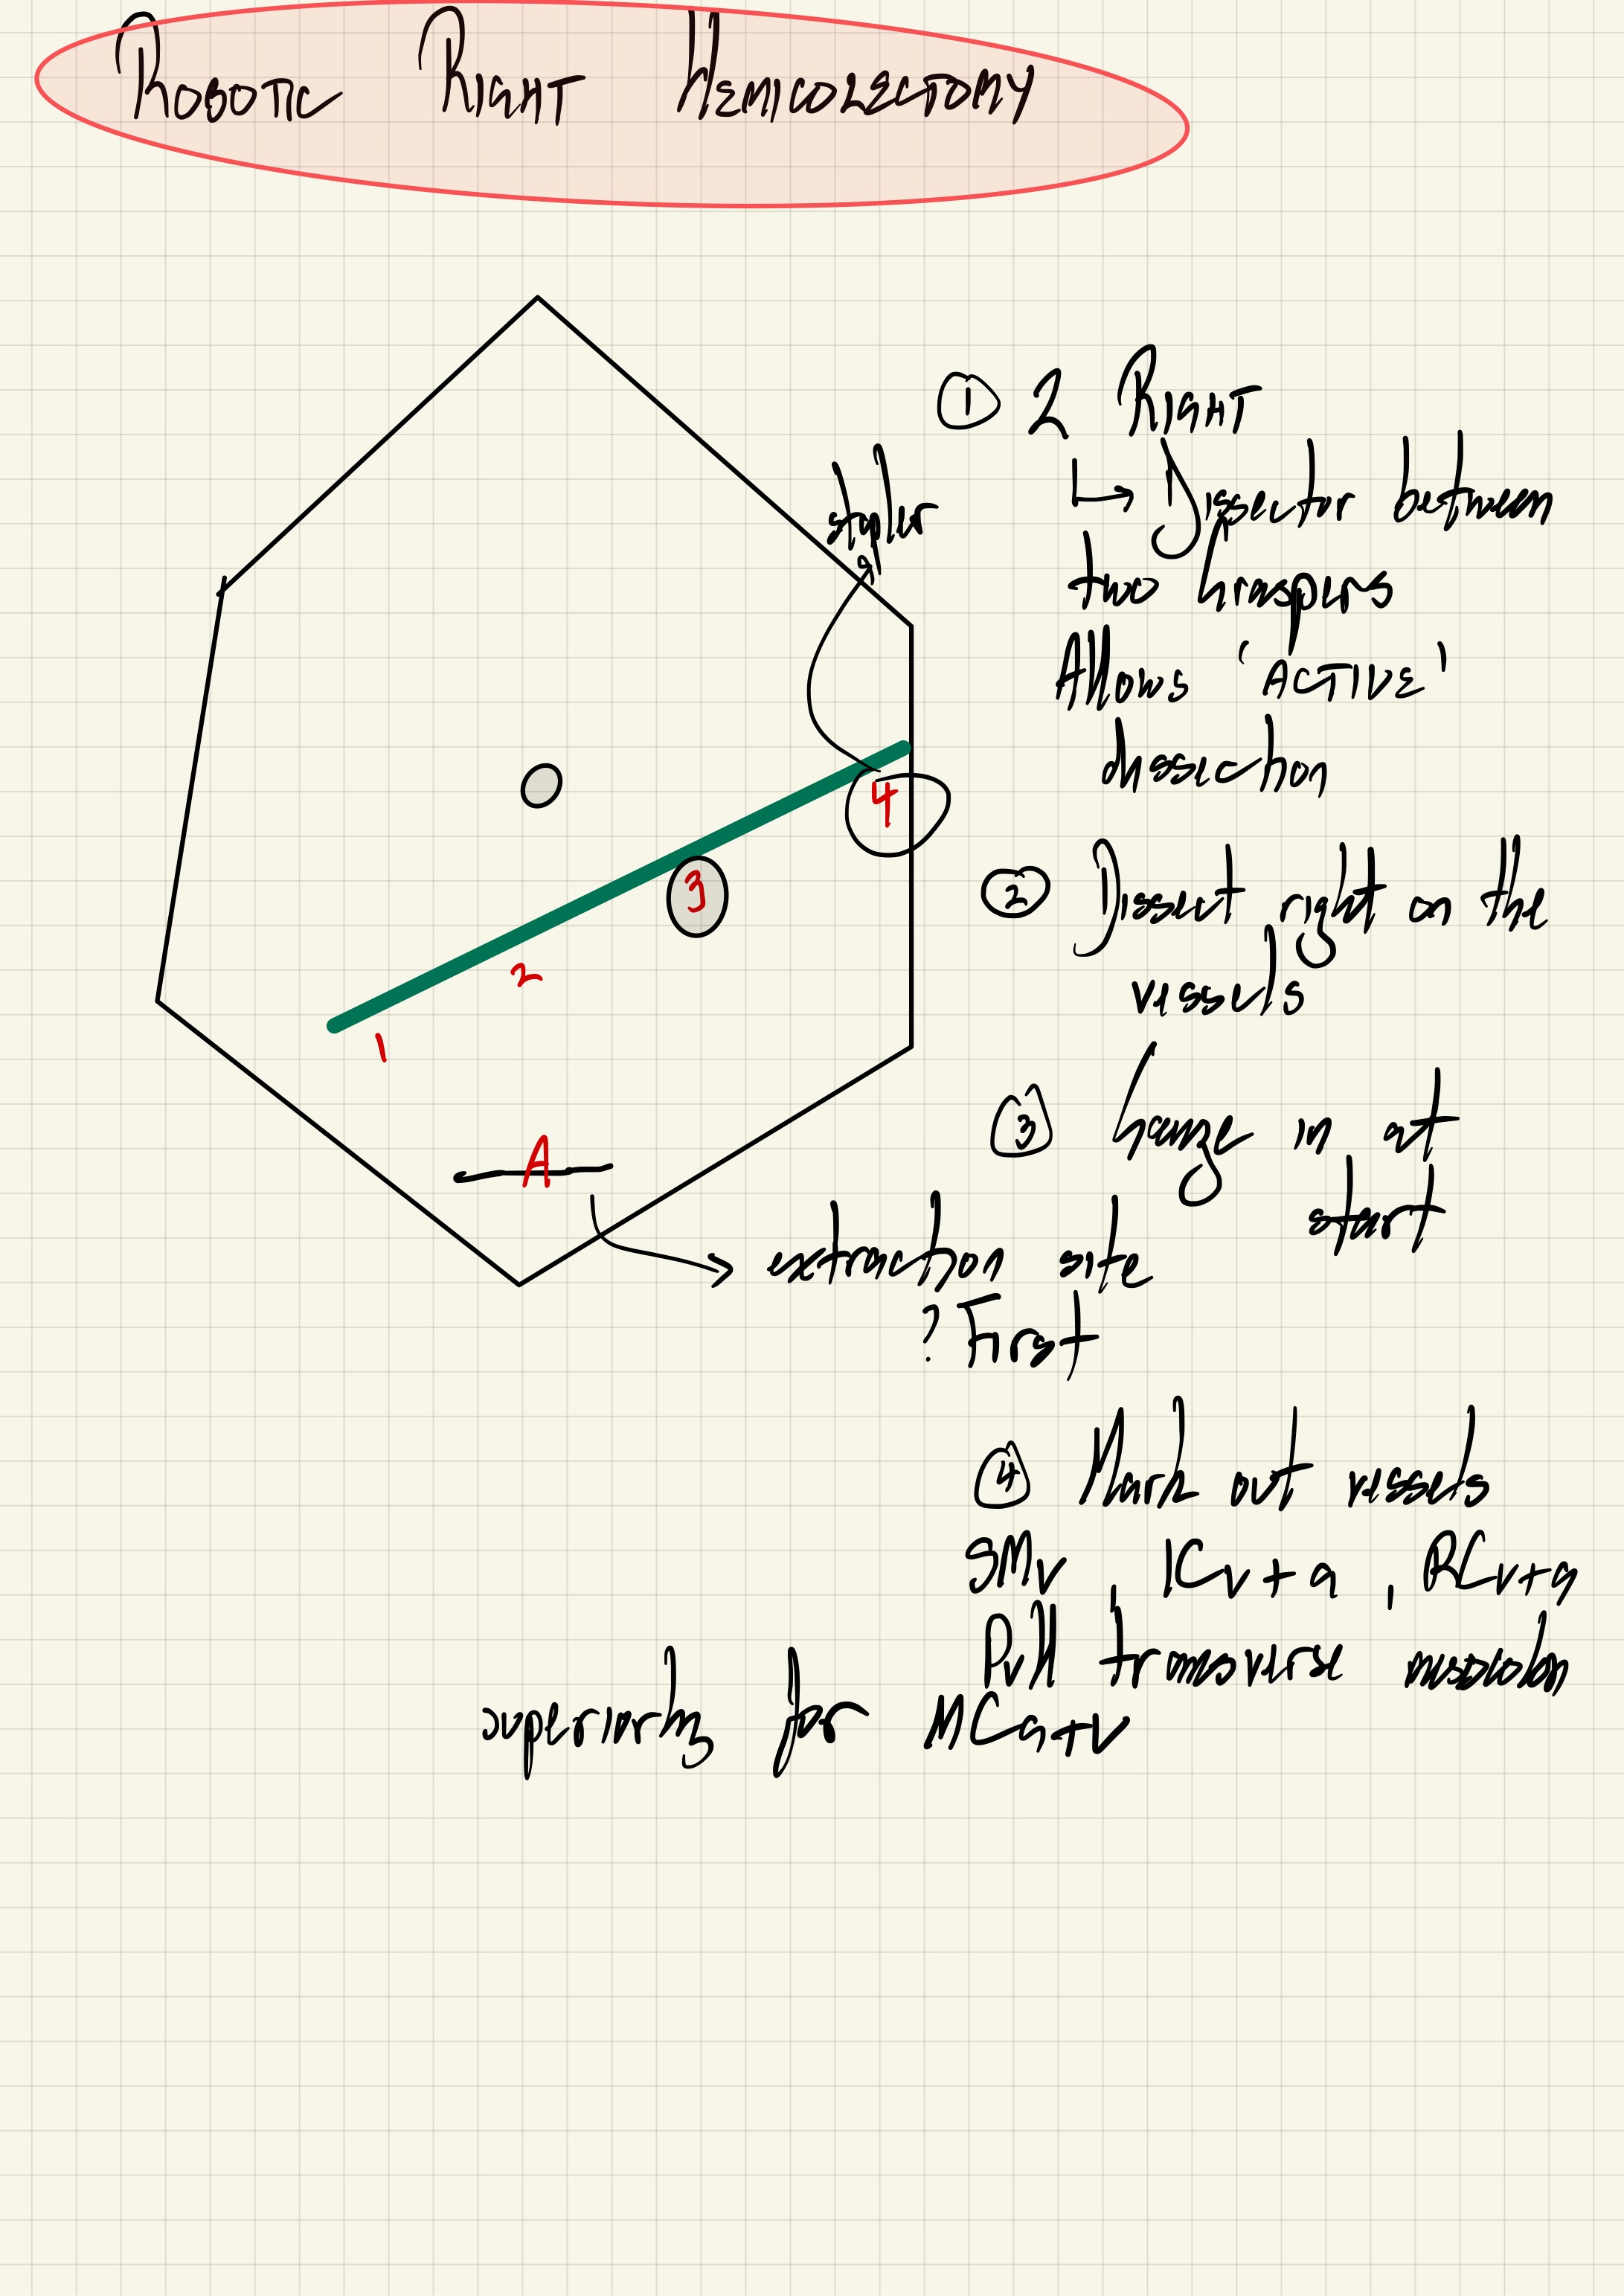 ROBOTIC RIGHT HEMICOLECTOMY
stapler
4
3
2
1
A
extraction site
? First
① 2 RIGHT
↳ Dissector between
two Graspers
Allows 'ACTIVE'
dissection
② Dissect right on the
vessels
③ Gauze in at
start
④ Mark out vessels
SMv, ICv+a, RCv+a
Pull transverse mesocolon
superiorly for MCa+v